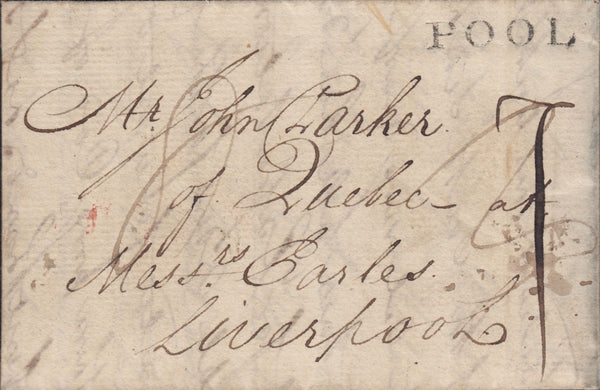 POOL
Mr. John Parker
of Quebec at
Messrs. Earles
Liverpool
7